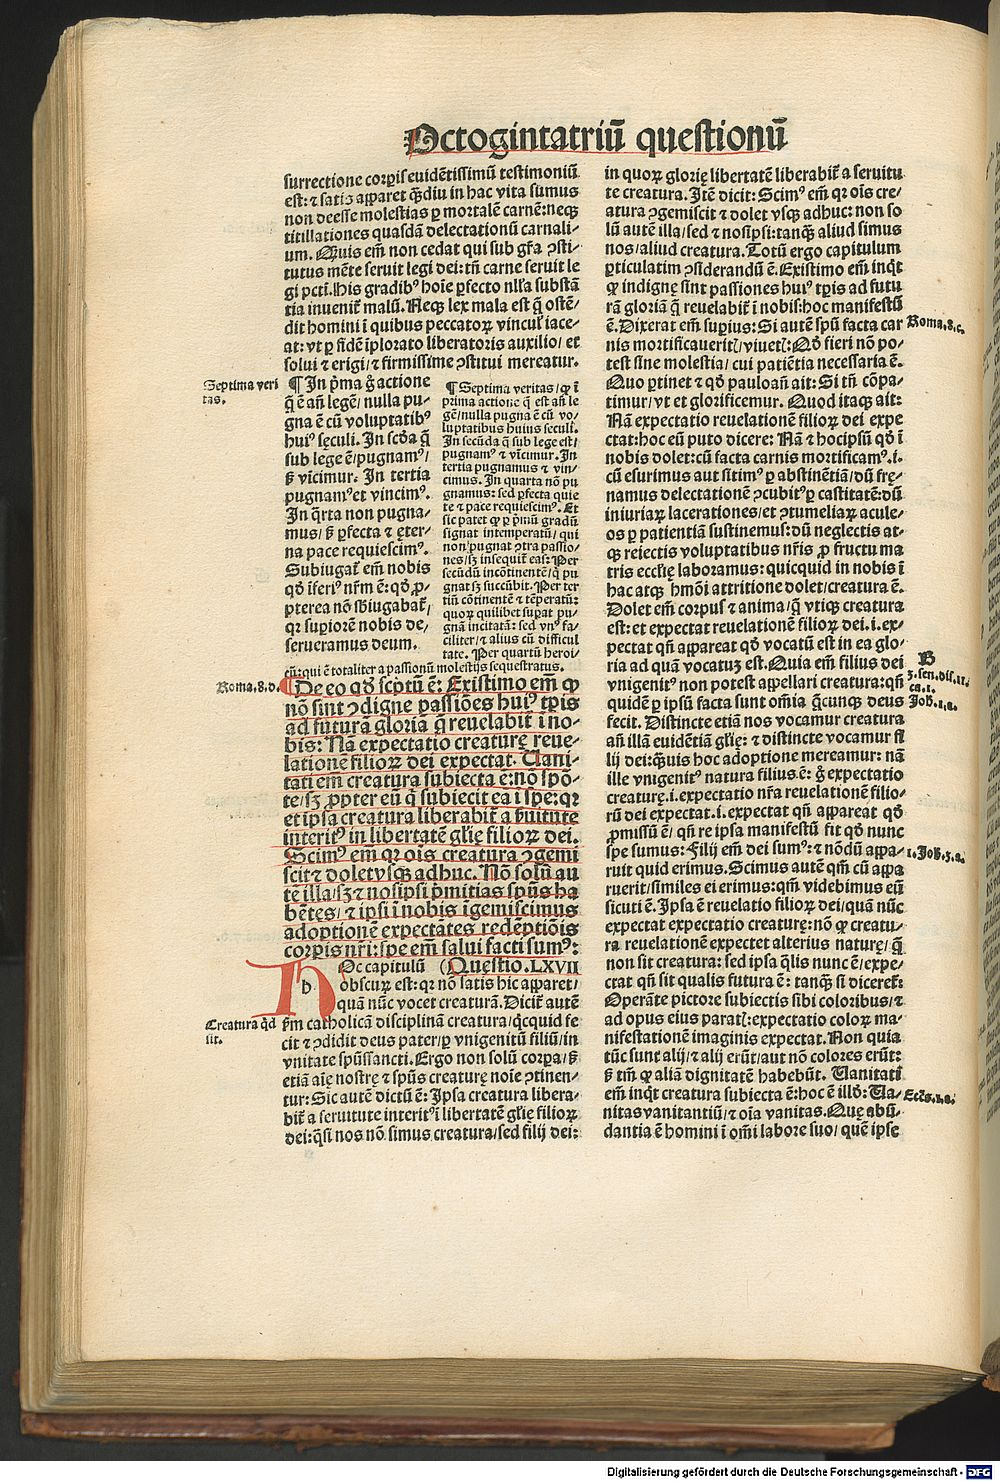 Octogintatriū questionū
surrectione corꝑis euidētissimū testimoniū
est: ⁊ satis apparet q̄diu in hac vita sumus
non deesse molestias ꝑ mortalē carnē: neqꝫ
titillationes quasdā delectationū carnali⸗
um. Quis em̄ non cedat qui sub gr̄a ꝯsti⸗
tutus mēte seruit legi dei: tn̄ carne seruit le
gi pcti. His gradibꝰ hoīe ꝑfecto nl̄la substā
tia inuenit̄ malū. Neqꝫ lex mala est q̄ ostē⸗
dit homini ī quibus peccatoꝝ vincul' iace⸗
at: vt ꝑ fidē īplorato liberatoris auxilio/ et
solui ⁊ erigi/ ⁊ firmissime ꝯstitui mereatur.
Septima veri
tas.
¶ In pͥma g̊ actione
q̄ ē an̄ legē/ nulla pu⸗
gna ē cū voluptatibꝰ
huiꝰ sęculi. In scd̄a q̄
sub lege ē/ pugnamꝰ/
ß vīcimur. In tertia
pugnamꝰ et vincimꝰ.
In q̄rta non pugna⸗
mus/ ß ꝑfecta ⁊ ęter⸗
na pace requiescimꝰ.
Subiugat̄ em̄ nobis
qd̄ īferiꝰ nr̄m ē: qd̄ ꝓ⸗
pterea nō sb̄iugabat̄/
qꝛ supiorē nobis de⸗
serueramus deum.
¶ Septima veritas/ ꝙ ī
prima actione q̄ est an̄ le
gē/ nulla pugna ē cū vo⸗
luptatibus huius seculi.
In secūda q̄ sub lege est/
pugnamꝰ ⁊ vīcimur. In
tertia pugnamus ⁊ vin⸗
cimus. In quarta nō pu
gnamus: sed ꝑfecta quie
te ⁊ pace requiescimꝰ. Et
sic patet ꝙ ꝑ pͥmū gradū
signat intemperatū/ qui
non pugnat ꝯtra passio⸗
nes/ sꝫ insequit̄ eas: Per
secūdū incōtinentē/ q̇ pu
gnat sꝫ succūbit. Per ter
tiū cōtinentē ⁊ tēperatū:
quoꝝ quilibet supat pu⸗
gnā incitatā: sed vnꝰ fa⸗
ciliter/ ⁊ alius cū difficul
tate. Per quartū heroi⸗
cū: qui ē totaliter a passionū molestijs sequestratus.
Roma.8.d.
¶ De eo qd̄ scptū ē: Existimo em̄ ꝙ
nō sint ꝯdigne passiōes huiꝰ tꝑis
ad futurā gloriā q̄ reuelabit̄ ī no⸗
bis: Nā expectatio creaturę reue⸗
lationē filioꝝ dei expectat. Uani⸗
tati em̄ creatura subiecta ē: nō spō⸗
te/ sꝫ ꝓpter eū q̇ subiecit ea ī spe: qꝛ
et ip̄a creatura liberabit̄ a ẜuitute
interitꝰ in libertatē gl̄ie filioꝝ dei.
Scimꝰ em̄ qꝛ oīs creatura ꝯgemi
scit ⁊ dolet vsqꝫ adhuc. Nō solū au
tē illa/ sꝫ ⁊ nosipsi pͥmitias spūs ha
bētes/ ⁊ ipsi ī nobis īgemiscimus
adoptionē expectātes redēptiōis
corꝑis nr̄i: spe em̄ salui facti sumꝰ:
Hoc capitulū (Questio.LXVII
obscuꝝ est: qꝛ nō satis hic apparet/
quā nūc vocet creaturā. Dicit̄ autē
Creatura qd̄
sit.
ẜm catholicā disciplinā creatura/ q̇cquid fe
cit ⁊ ꝯdidit deus pater/ ꝑ vnigenitū filiū/ in
vnitate spūssancti. Ergo non solū corpa/ ß
etiā aīę nostrę ⁊ spūs creaturę noīe ꝯtinen⸗
tur: Sic autē dictū ē: Ipsa creatura libera⸗
bit̄ a seruitute interitꝰ ī libertatē gl̄ie filioꝝ
dei: q̄si nos nō simus creatura/ sed filij dei:
in quoꝝ glorię libertatē liberabit̄ a seruitu
te creatura. Itē dicit: Scimꝰ em̄ qꝛ oīs cre⸗
atura ꝯgemiscit ⁊ dolet vsqꝫ adhuc: non so
lū autē illa/ sed ⁊ nosipsi: tanqꝫ aliud simus
nos/ aliud creatura. Totū ergo capitulum
ꝑticulatim ꝯsiderandū ē. Existimo em̄ inq̇t
ꝙ indignę sint passiones huiꝰ tꝑis ad futu
rā gloriā q̄ reuelabit̄ ī nobis: hoc manifestū
ē. Dixerat em̄ supius: Si autē spū facta car
Roma.8.c.
nis mortificauerit/ viuet: Qd̄ fieri nō po⸗
test sine molestia/ cui patiētia necessaria ē.
Quo ꝑtinet ⁊ qd̄ pauloan̄ ait: Si tn̄ cōpa⸗
timur/ vt et glorificemur. Quod itaqꝫ ait:
Nā expectatio reuelationē filioꝝ dei expe
ctat: hoc eū puto dicere: Nā ⁊ hocipsū qd̄ ī
nobis dolet: cū facta carnis mortificamꝰ. i.
cū esurimus aut sitimꝰ ꝑ abstinētiā/ dū frę⸗
namus delectationē ꝯcubitꝰ ꝑ castitatē: dū
iniuriaꝝ lacerationes/ et ꝯtumeliaꝝ acule⸗
os ꝑ patientiā sustinemus: dū neglectis at⸗
qꝫ reiectis voluptatibus nr̄is ꝓ fructu ma
tris eccl̄ię laboramus: quicquid in nobis ī
hac atqꝫ hmōi attritione dolet/ creatura ē.
Dolet em̄ corpus ⁊ anima/ q̄ vtiqꝫ creatura
est: et expectat reuelationē filioꝝ dei. i. ex⸗
pectat qn̄ appareat qd̄ vocatū est in ea glo⸗
ria ad quā vocatuꝫ est. Quia em̄ filius dei
B
3.sen.dis.11.
ca.1.
Joh.1.a.
vnigenitꝰ non potest appellari creatura: qn̄
quidē ꝑ ipsū facta sunt om̄ia q̄cunqꝫ deus
fecit. Distincte etiā nos vocamur creatura
an̄ illā euidētiā gl̄ię: ⁊ distincte vocamur fi
lij dei: q̄uis hoc adoptione mereamur: nā
ille vnigenitꝰ natura filius ē: g̊ expectatio
creaturę. i. expectatio nr̄a reuelationē filio⸗
rū dei expectat. i. expectat qn̄ appareat qd̄
ꝓmissū ē/ qn̄ re ipsa manifestū fit qd̄ nunc
spe sumus: Filij em̄ dei sumꝰ: ⁊ nōdū appa⸗
1.Joh.3.a.
ruit quid erimus. Scimus autē qm̄ cū appa
ruerit/ similes ei erimus: qm̄ videbimus eū
sicuti ē. Ipsa ē reuelatio filioꝝ dei/ quā nūc
expectat expectatio creaturę: nō ꝙ creatu⸗
ra reuelationē expectet alterius naturę/ q̄
non sit creatura: sed ipsa q̄lis nunc ē/ expe⸗
ctat qn̄ sit qualis futura ē: tanqꝫ si diceret̄:
Operāte pictore subiectis sibi coloribus/ ⁊
ad opus eius parat: expectatio coloꝝ ma⸗
nifestationē imaginis expectat. Non quia
tūc sunt alij/ ⁊ alij erūt/ aut nō colores erūt:
ß tm̄ ꝙ aliā dignitatē habebūt. Uanitati
em̄ inq̇t creatura subiecta ē: hoc ē illd̄: Ua⸗
Eccs.1.a.
nitas vanitantiū/ ⁊ oīa vanitas. Quę abū⸗
dantia ē homini ī om̄i labore suo/ quē ipse
Digitalisierung gefördert durch die Deutsche Forschungsgemeinschaft - DFG